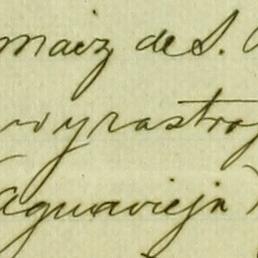 maiz de S.
y rastroj
aguavieja